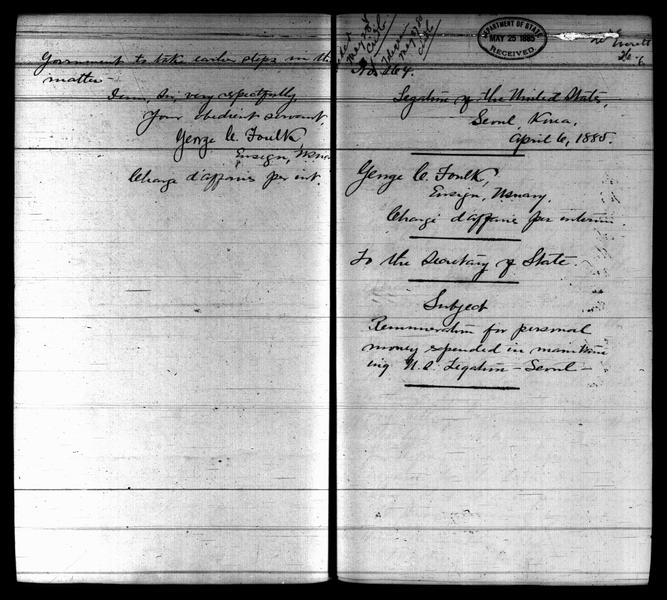 Government to take earlier steps in the
matter—
I am, Sir, very respectfully,
Your obedient servant,
George C. Foulk,
Ensign, U.S. Navy
Chargé d'affaires per int.
DEPARTMENT OF STATE
MAY 25 1885
RECEIVED
No. 164.
Legation of the United States,
Seoul Korea.
April 6, 1885.
George C. Foulk,
Ensign, U.S. Navy.
Chargé d'affaires per interim
To the Secretary of State
Subject
Remuneration for personal
money expended in maintain
ing U.S. Legation – Seoul –